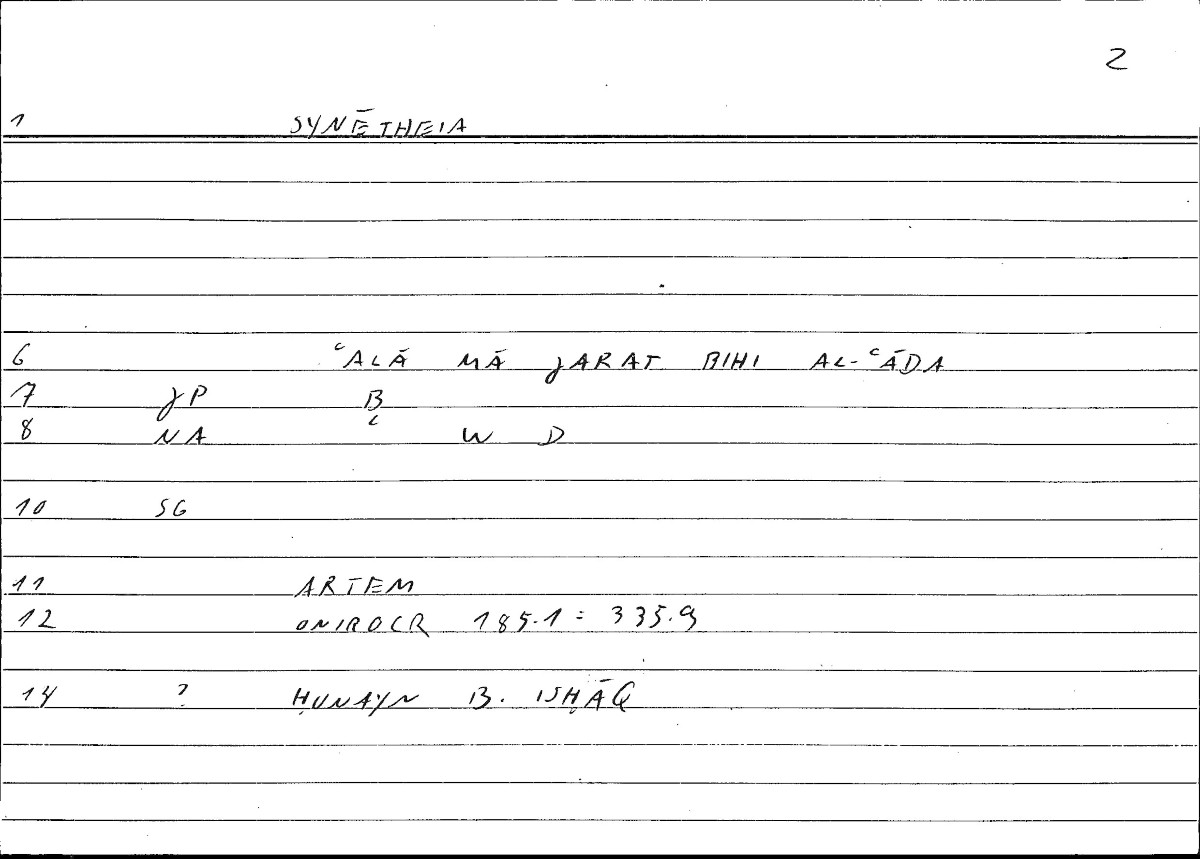 2
1 SYNĒTHEIA
6 ʿALĀ MĀ JARAT BIHI AL-ʿĀDA
7 JP B
8 NA ʿ W D
10 SG
11 ARTEM
12 ONIROCR 185.1 = 335.9
14 ? ḤUNAYN B. ISḤĀQ